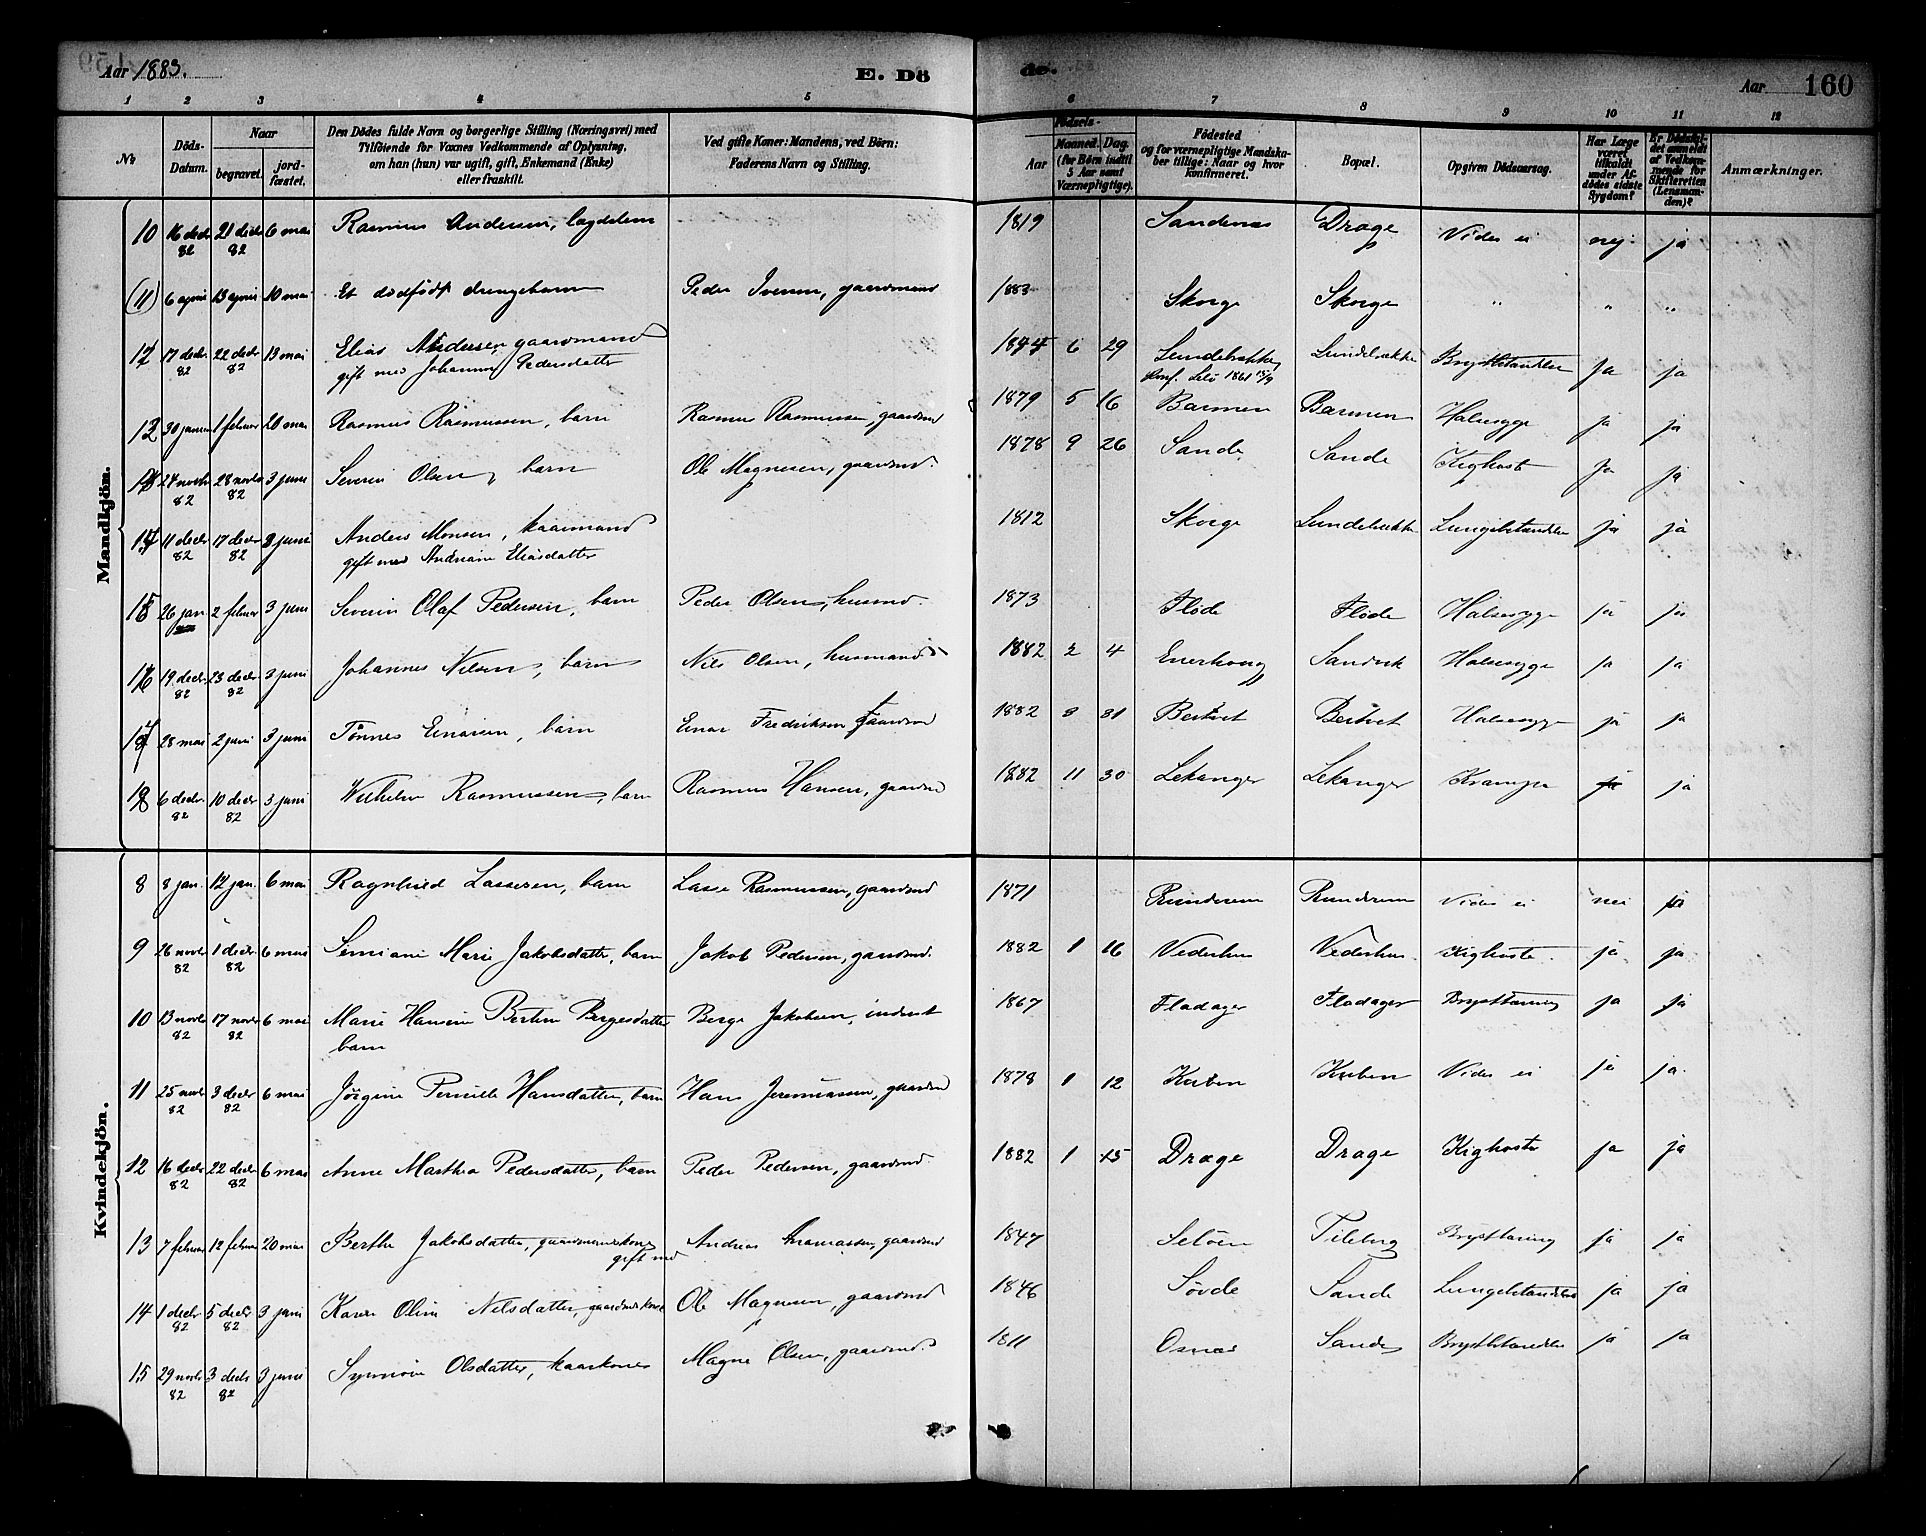 Aar 1883.
E. Dö
de.
Aar
160
1 2 3 4 5 6 7 8 9 10 11 12
No
Döds-Datum.
Naar
begravet.
jord-fæstet.
Den Dödes fulde Navn og borgerlige Stilling (Næringsvei) med
Tilföiende for Voxnes Vedkommende af Oplysning,
om han (hun) var ugift, gift, Enkemand (Enke)
eller fraskilt.
Ved gifte Koner: Mandens, ved Börn:
Faderens Navn og Stilling.
Födsels-
Aar
Maaned. Dag.
(for Börn indtil
5 Aar samt
Værnepligtige).
Födested
og for værnepligtige Mandska-
ber tillige: Naar og hvor
konfirmeret.
Bopæl.
Opgiven Dödsaarsag.
Har Læge
været
tilkaldt
under Af-
dödes sidste
Sygdom?
Er Dödsfal-
det anmeldt
af Vedkom-
mende for
Skifteretten
(Lensman-
den)?
Anmærkninger.
Mandkjön.
10 16 decbr 82 21 decbr 82 6 mai Rasmus Andersen, lægdslem 1819 Sandenæs Drage Vides ei nej ja
(11) 6 april 13 april 10 mai Et dødfødt drengebarn Peder Iversen, gaardmand 1883 Skorge Skorge " " "
12 17 decbr 82 22 decbr 82 13 mai Elias Andersen, gaardmand 1844 6 29 Lundebrække Lundebrække Brystbetændelse ja ja
gift med Johanna Pedersdatter Konf. Selö 1861 15/9
13 30 januar 1 februar 20 mai Rasmus Rasmussen, barn Rasmus Rasmussen, gaardmd 1879 5 16 Barmen Barmen Halssyge ja ja
24 novbr 82 28 novbr 82 3 juni Severin Olsen, barn Ole Magnesen, gaardmd. 1878 9 26 Sande Sande Kighoste ja ja
14 11 decbr 82 17 decbr 82 3 juni Anders Monsen, kaarmand 1812 Skorge Lundebrække Lungebetændelse ja ja
gift med Andriane Eliasdatter
15 26 jan 2 februar 3 juni Severin Olaf Pedersen, barn Peder Olsen, husmd. 1873 Flöde Flöde Halssyge ja ja
16 19 decbr 82 23 decbr 82 3 juni Johannes Nilsen, barn Nils Olsen, husmand 1882 2 4 Enerhoug Sandvik Halssyge ja ja
17 28 mai 2 juni 3 juni Tönnes Enarsen, barn Enar Fredriksen, Gaardmd 1882 8 31 Berstvet Berstvet Halssyge ja ja
18 6 decbr. 82 10 decbr 82 3 juni Wilhelm Rasmussen, barn Rasmus Hansen, gaardmd 1882 11 30 Lekanger Lekanger Krampe ja ja
Kvindekjön.
8 8 jan. 12 jan. 6 mai Ragnhild Lassesen, barn Lasse Rasmussen, gaardmd 1871 Runderem Runderem Vides ei nei ja
9 26 novbr 82 1 decbr 82 6 mai Marie Jakobsdatter, barn Jakob Pedersen, gaardmd. 1882 1 16 Vederhus Vederhus Kighoste ja ja
10 13 novbr 82 17 novbr 82 6 mai Marie Hansine Bertine Bergesdatter Berge Jakobsen, inderst 1867 Fladager Fladager Brysttæring ja ja
barn
11 25 novbr 82 3 decbr 82 6 mai Jörgine Pernille Hansdatter, barn Hans Jeremiassen, gaardmd 1878 1 12 Kuben Kuben Vides ei ja ja.
12 16 decbr 82 22 decbr 82 6 mai Anne Marthea Pedersdatter, barn Peder Pedersen, gaardmd. 1882 1 15 Drage Drage Kighoste ja ja
13 7 februar 12 februar 20 mai Berthe Jakobsdatter, gaardmandskone gift med Andreas Thomassen, gaardmd 1847 Selöen Tileberg Brysttæring ja ja
14 1 decbr 82 5 decbr 82 3 juni Karen Oline Nilsdatter, gaardmds kone Ole Magnesen, gaardmd 1846 Sövde Sande Lungebetændelse ja ja
15 29 novbr 82 3 decbr 82 3 juni Synnöve Olsdatter, kaarkone Magne Olsen, gaardmd. 1811 Osnæs Sande Brystbetændelse ja ja